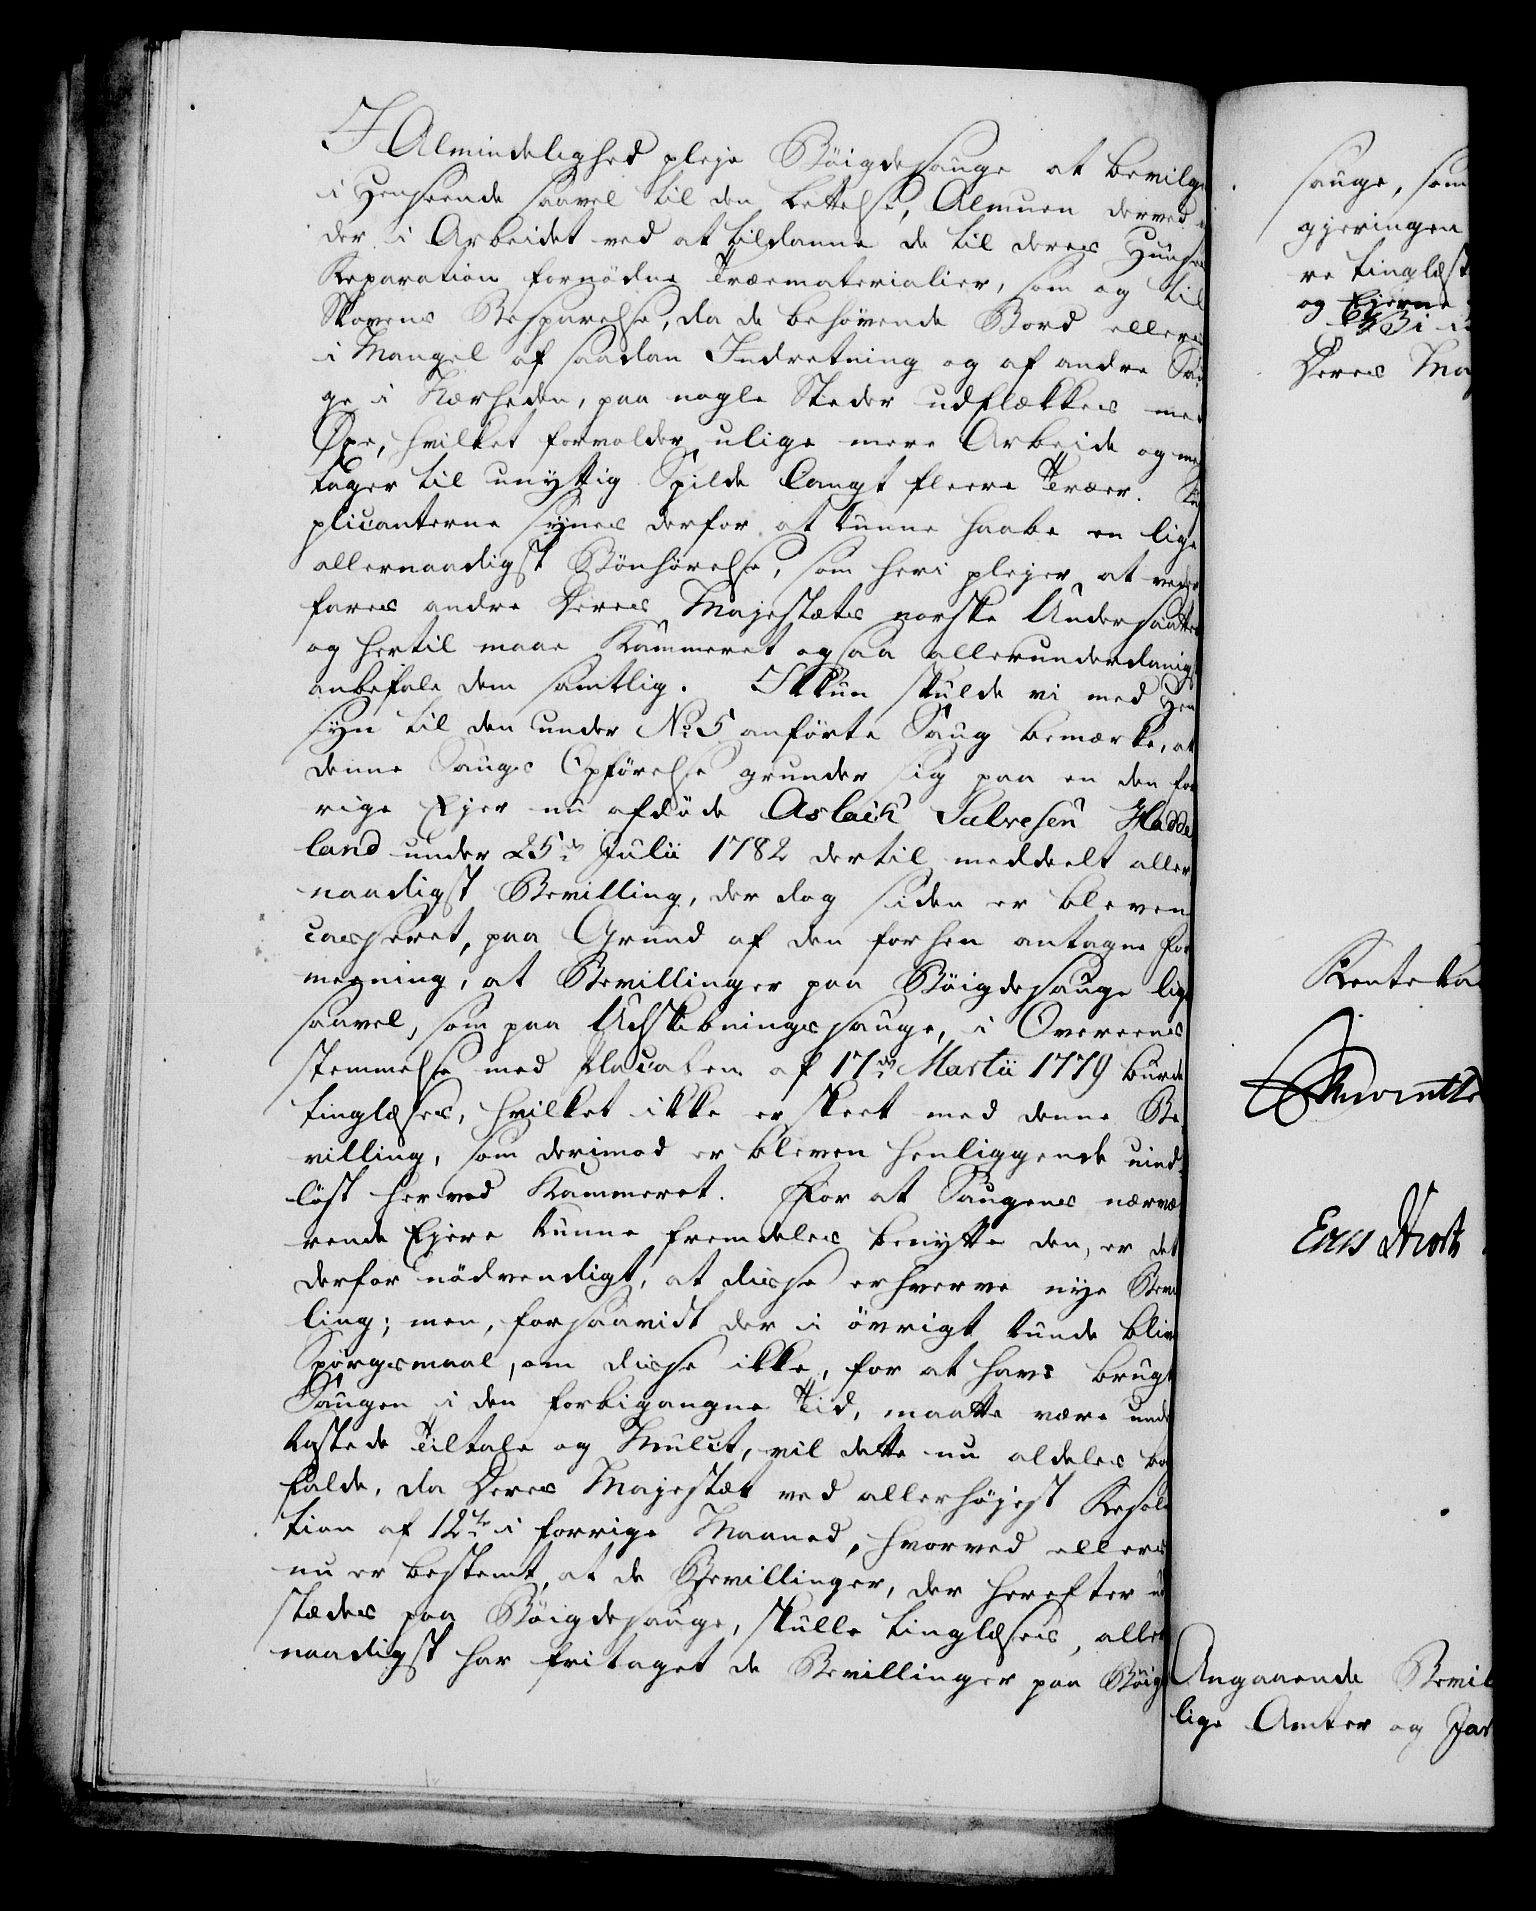 I Almindelighed pleje Böigdesauge at bevilge
i Henseende saavel til den Lettelse, Almuen derved
der i Arbeidet ved at tildanne de til deres Huuses
Reparation fornødne Træematerialier, som og til
Skovens Besparelse, da de behövende Bord ellers
i Mangel af saadan Indretning og af andre Sau
ge i Nærheden, paa nogle Steder udflækkes med
Øxe, hvilket forvolder ulige mere Arbejde og med
tager til unyttig Spilde langt fleere Træer. Sup
plicanterne synes derfor at kunne haabe en lige
allernaadigst Bönhørelse, som heri plejer at veder
fares andre Deres Majestæts norske Undersaatter
og hertil maae Kammeret ogsaa allerunderdanigst
anbefale dem samtlig. Ikkun skulde vi med Hen
syn til den under No 5 anførte Saug bemærke, at
denne Saugs Opförelse grunder sig paa en den for
rige Ejer nu afdöde Aslach Salvesen Hadde
land under 25de Julii 1782 dertil meddeelt aller
naadigst Bevilling, der dog siden er bleven
casseret, paa Grund af den forhen antagne For
meening, at Bevillinger paa Böigdesauge lige
saavel, som paa Udskibningssauge, i Overeens
stemmelse med Placaten af 17de Martii 1779 burde
tinglæses, hvilket ikke er skeet med denne Be
villing, som derimod er bleven henliggende uind
löst herved Kammeret. For at Saugens nærvæ
rende Ejere kunne fremdeles benytte den, er det
derfor nödvendigt, at disse erhverve nye Bevil
ling; men, forsaavidt der i övrigt kunde blive
Spörgsmaal, om disse ikke, for at have brugt
Saugen i den forbigangne Tid, maatte være under
kastede Tiltale og Mulct, vil dette nu aldeles bort
falde, da Deres Majestæt ved allerhöjest Resolu
tion af 12te i forrige Maaned, hvorved ellers
nu er bestemt, at de Bevillinger, der herefter ud
stædes paa Böigdesauge, skulle tinglæses, aller
naadigst har fritaget de Bevillinger paa Böigde
sauge, som
gjeringen
re tinglæst
og Ejerne
Deres Maj
Renteka
Eers Hwoth
Angaaende Bevil
lige Amter og